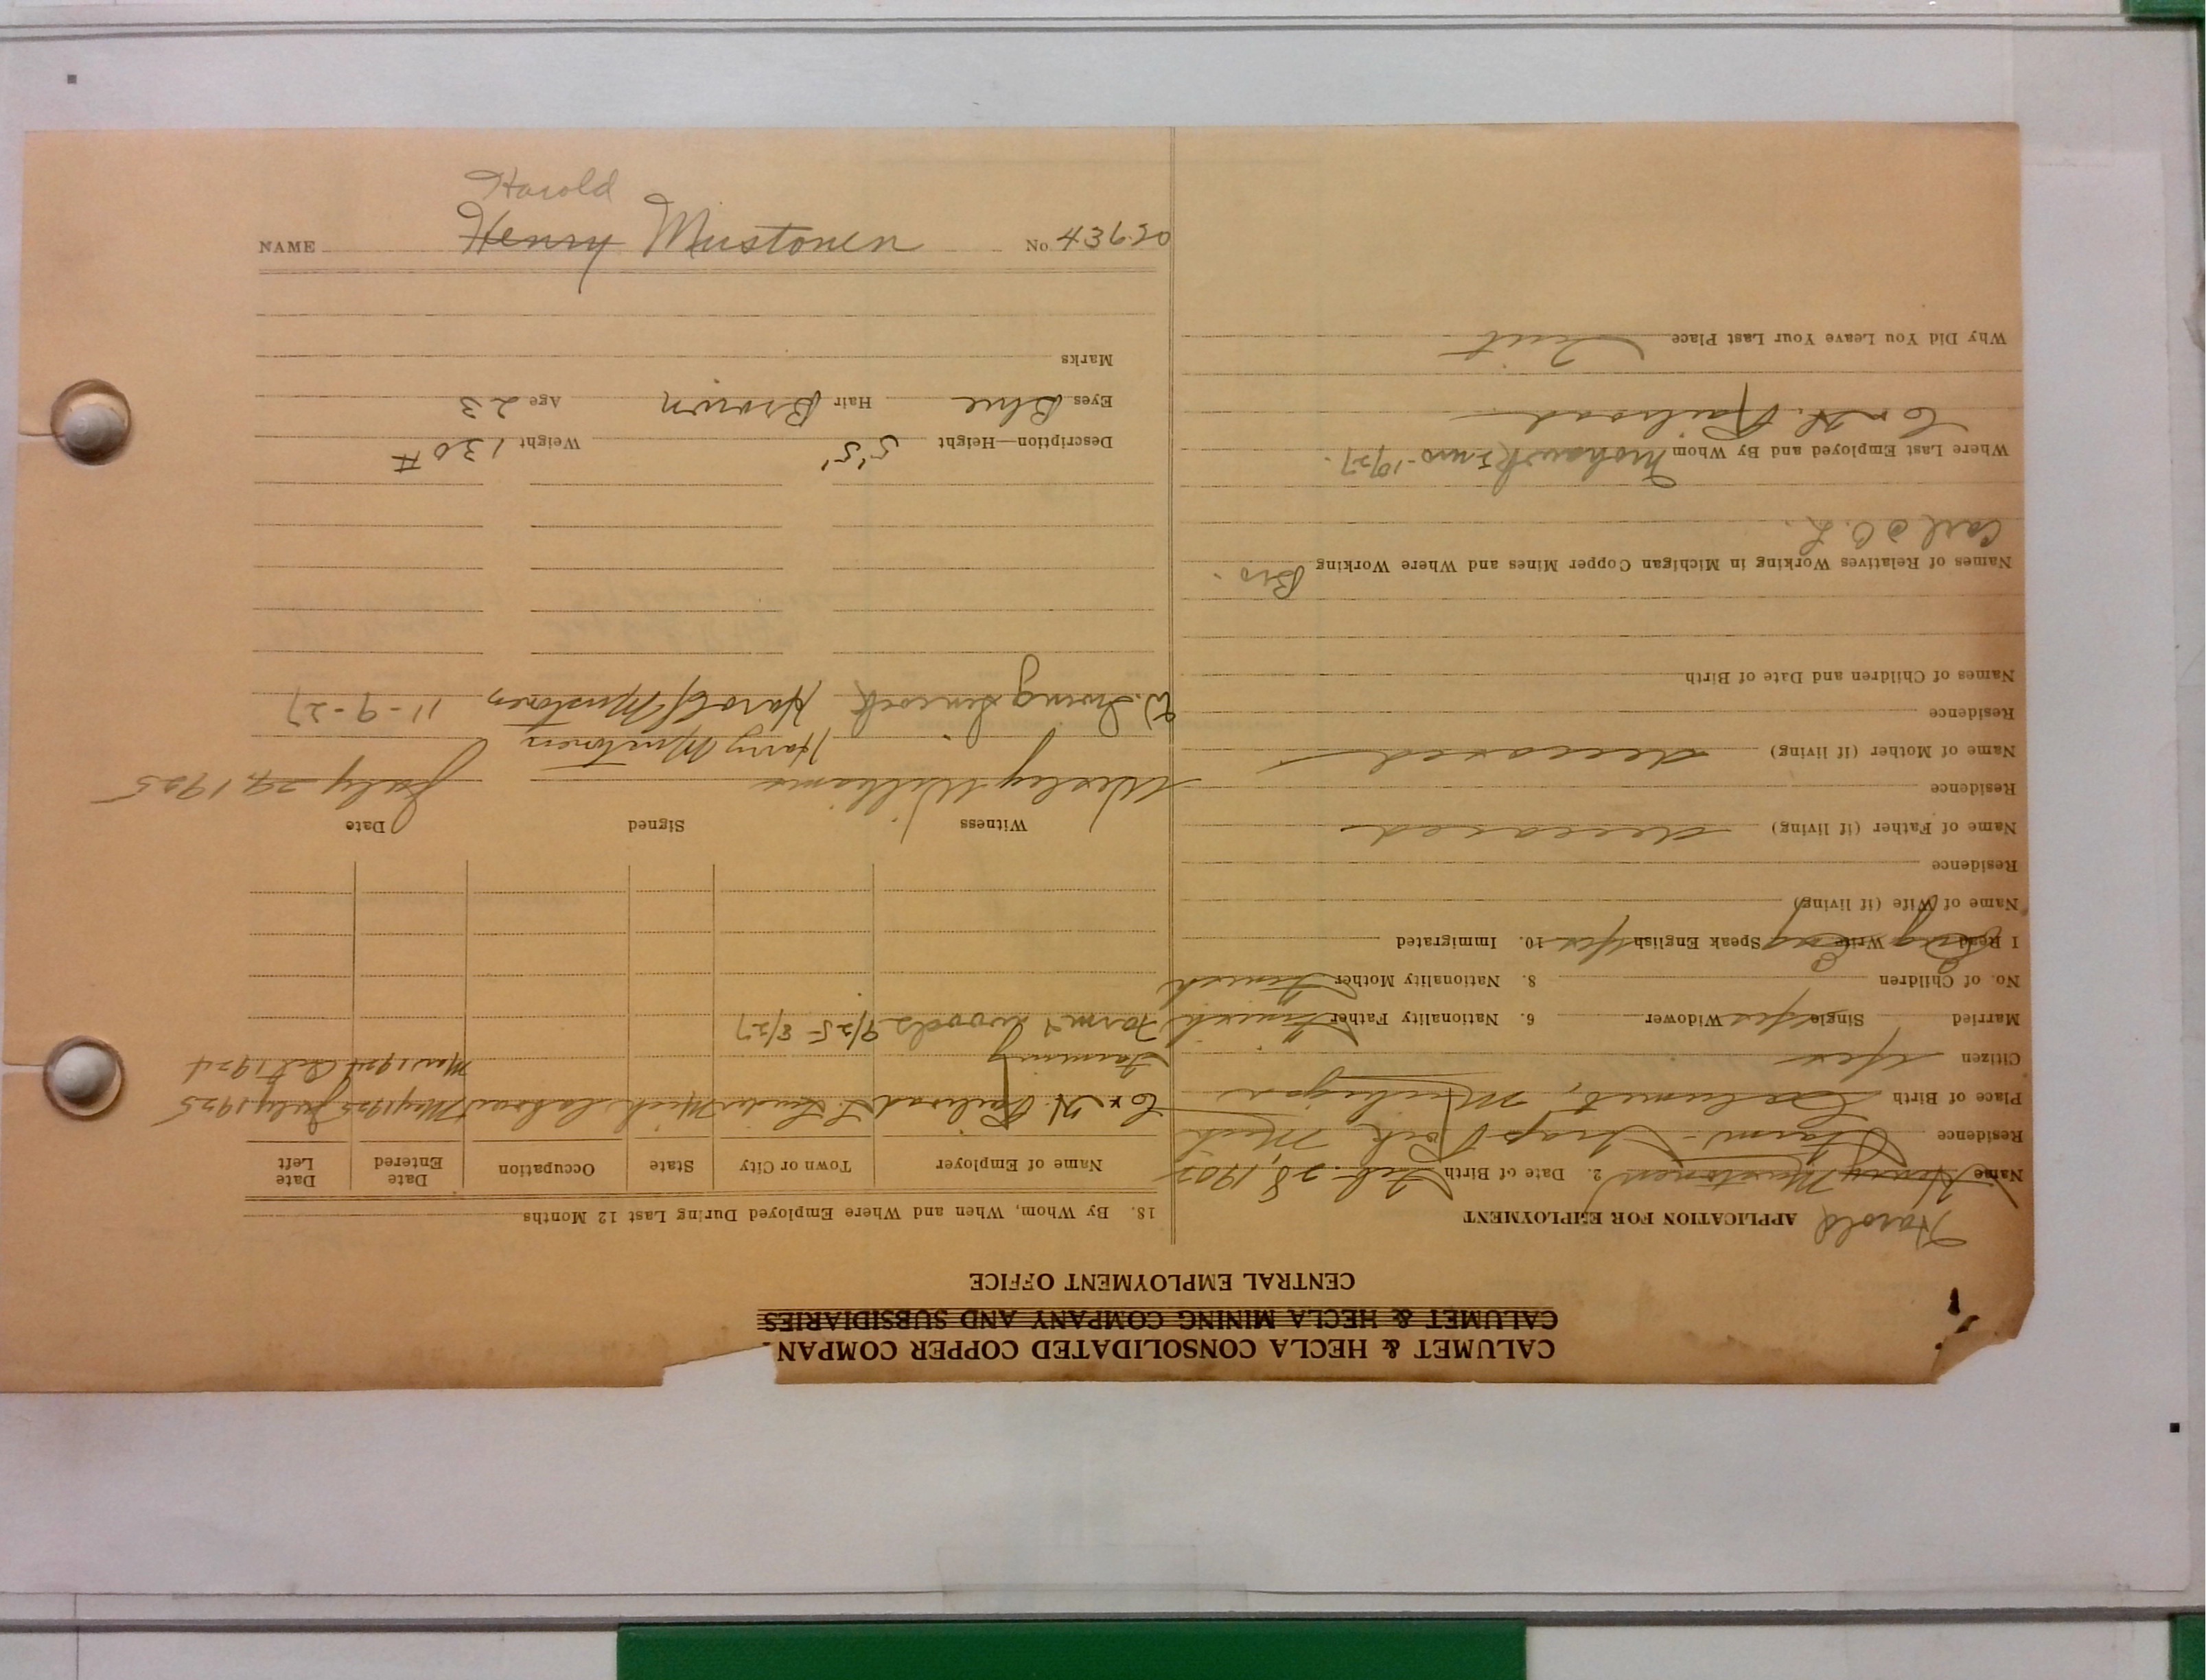 CALUMET & HECLA CONSOLIDATED COPPER COMPAN
CALUMET & HECLA MINING COMPANY AND SUBSIDIARIES
CENTRAL EMPLOYMENT OFFICE
Harold APPLICATION FOR EMPLOYMENT
Name Henry Mustonen 2. Date of Birth Feb. 28, 1902
Residence Farm - Trap Rock, Mich
Place of Birth Calumet, Michigan
Citizen Yes
Married Single Yes Widower 6. Nationality Father Finnish
No. of Children 8. Nationality Mother Finnish
I Read Eng Write Eng Speak English Yes 10. Immigrated
Name of Wife (if living)
Residence
Name of Father (if living) deceased
Residence
Name of Mother (if living) deceased
Residence
Names of Children and Date of Birth
Names of Relatives Working in Michigan Copper Mines and Where Working Bro.
Carl @ O. L.
Where Last Employed and By Whom Mohawk 10/27.
C & H. Railroad
Why Did You Leave Your Last Place Quit
18. By Whom, When and Where Employed During Last 12 Months
Name of Employer Town or City State Occupation Date Entered Date Left
C & H. Railroad L. Linden Mich Laborer May 1925 July 1925
Farming Mar 1924 Oct 1924
Farm & woods 9/25 - 8/27
Witness Signed Date
Wesley Williams Harry Mustonen July 29, 1925
W. Irving Harold Mustonen 11-9-27
Description—Height 5'5" Weight 130#
Eyes Blue Hair Brown Age 23
Marks
Harold
NAME Henry Mustonen No. 43650